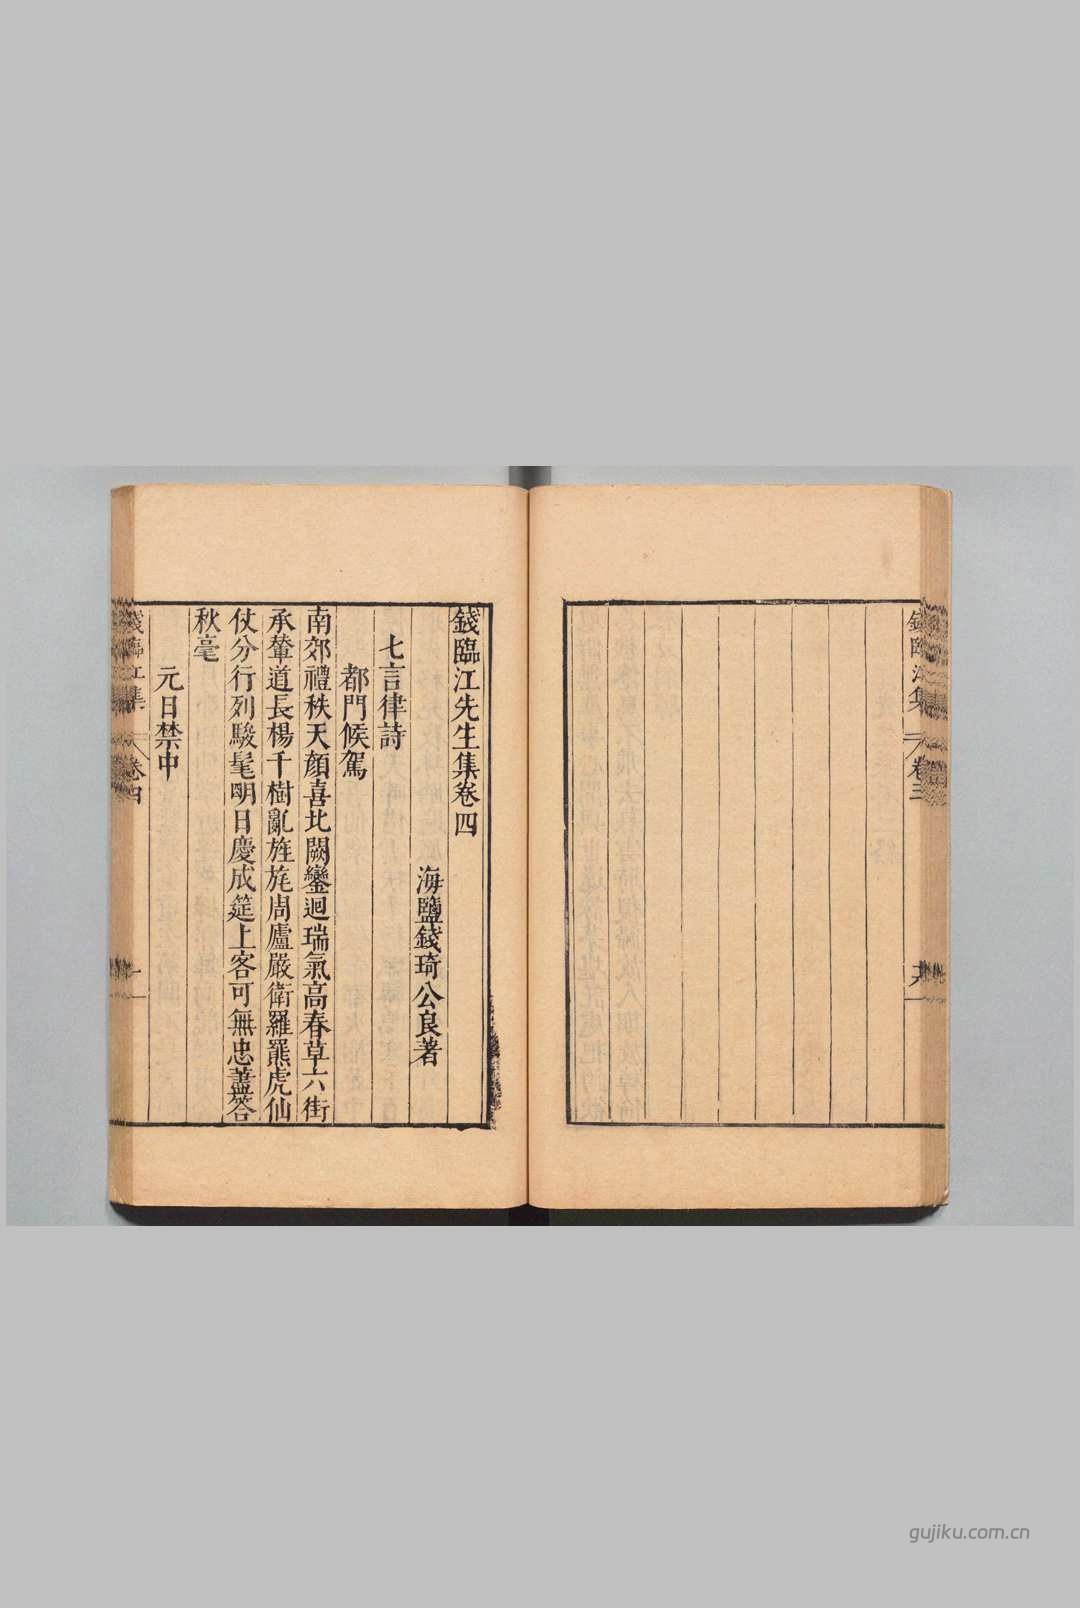 錢臨江集
卷三
六
錢臨江先生集卷四
海鹽錢琦公良著
七言律詩
都門候駕
南郊禮秩天顔喜北闕鑾迴瑞氣高春草六街
承輦道長楊千樹亂旌旄周廬嚴衛羅羆虎仙
仗分行列駿髦明日慶成筵上客可無忠藎答
秋毫
元日禁中
錢臨江集
卷四
一
gujiku.com.cn